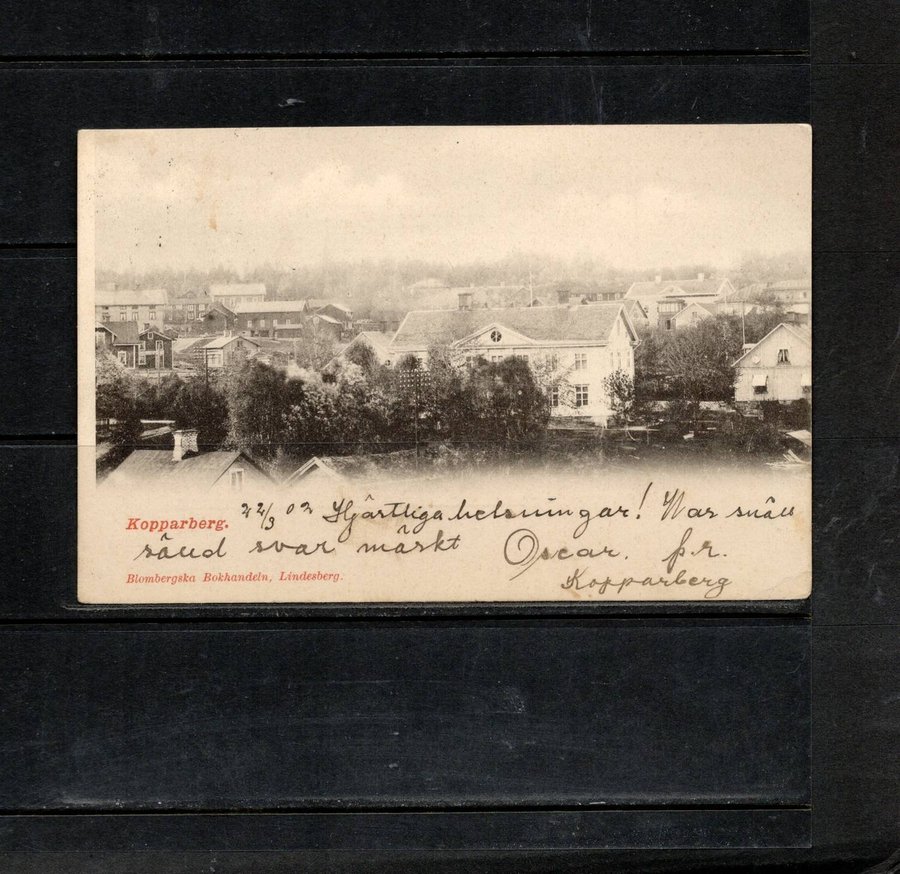 Kopparberg. 22/3 02 Hjärtliga helsningar! War snäll
sänd svar märkt Oscar. p.r.
Blombergska Bokhandeln, Lindesberg. Kopparberg